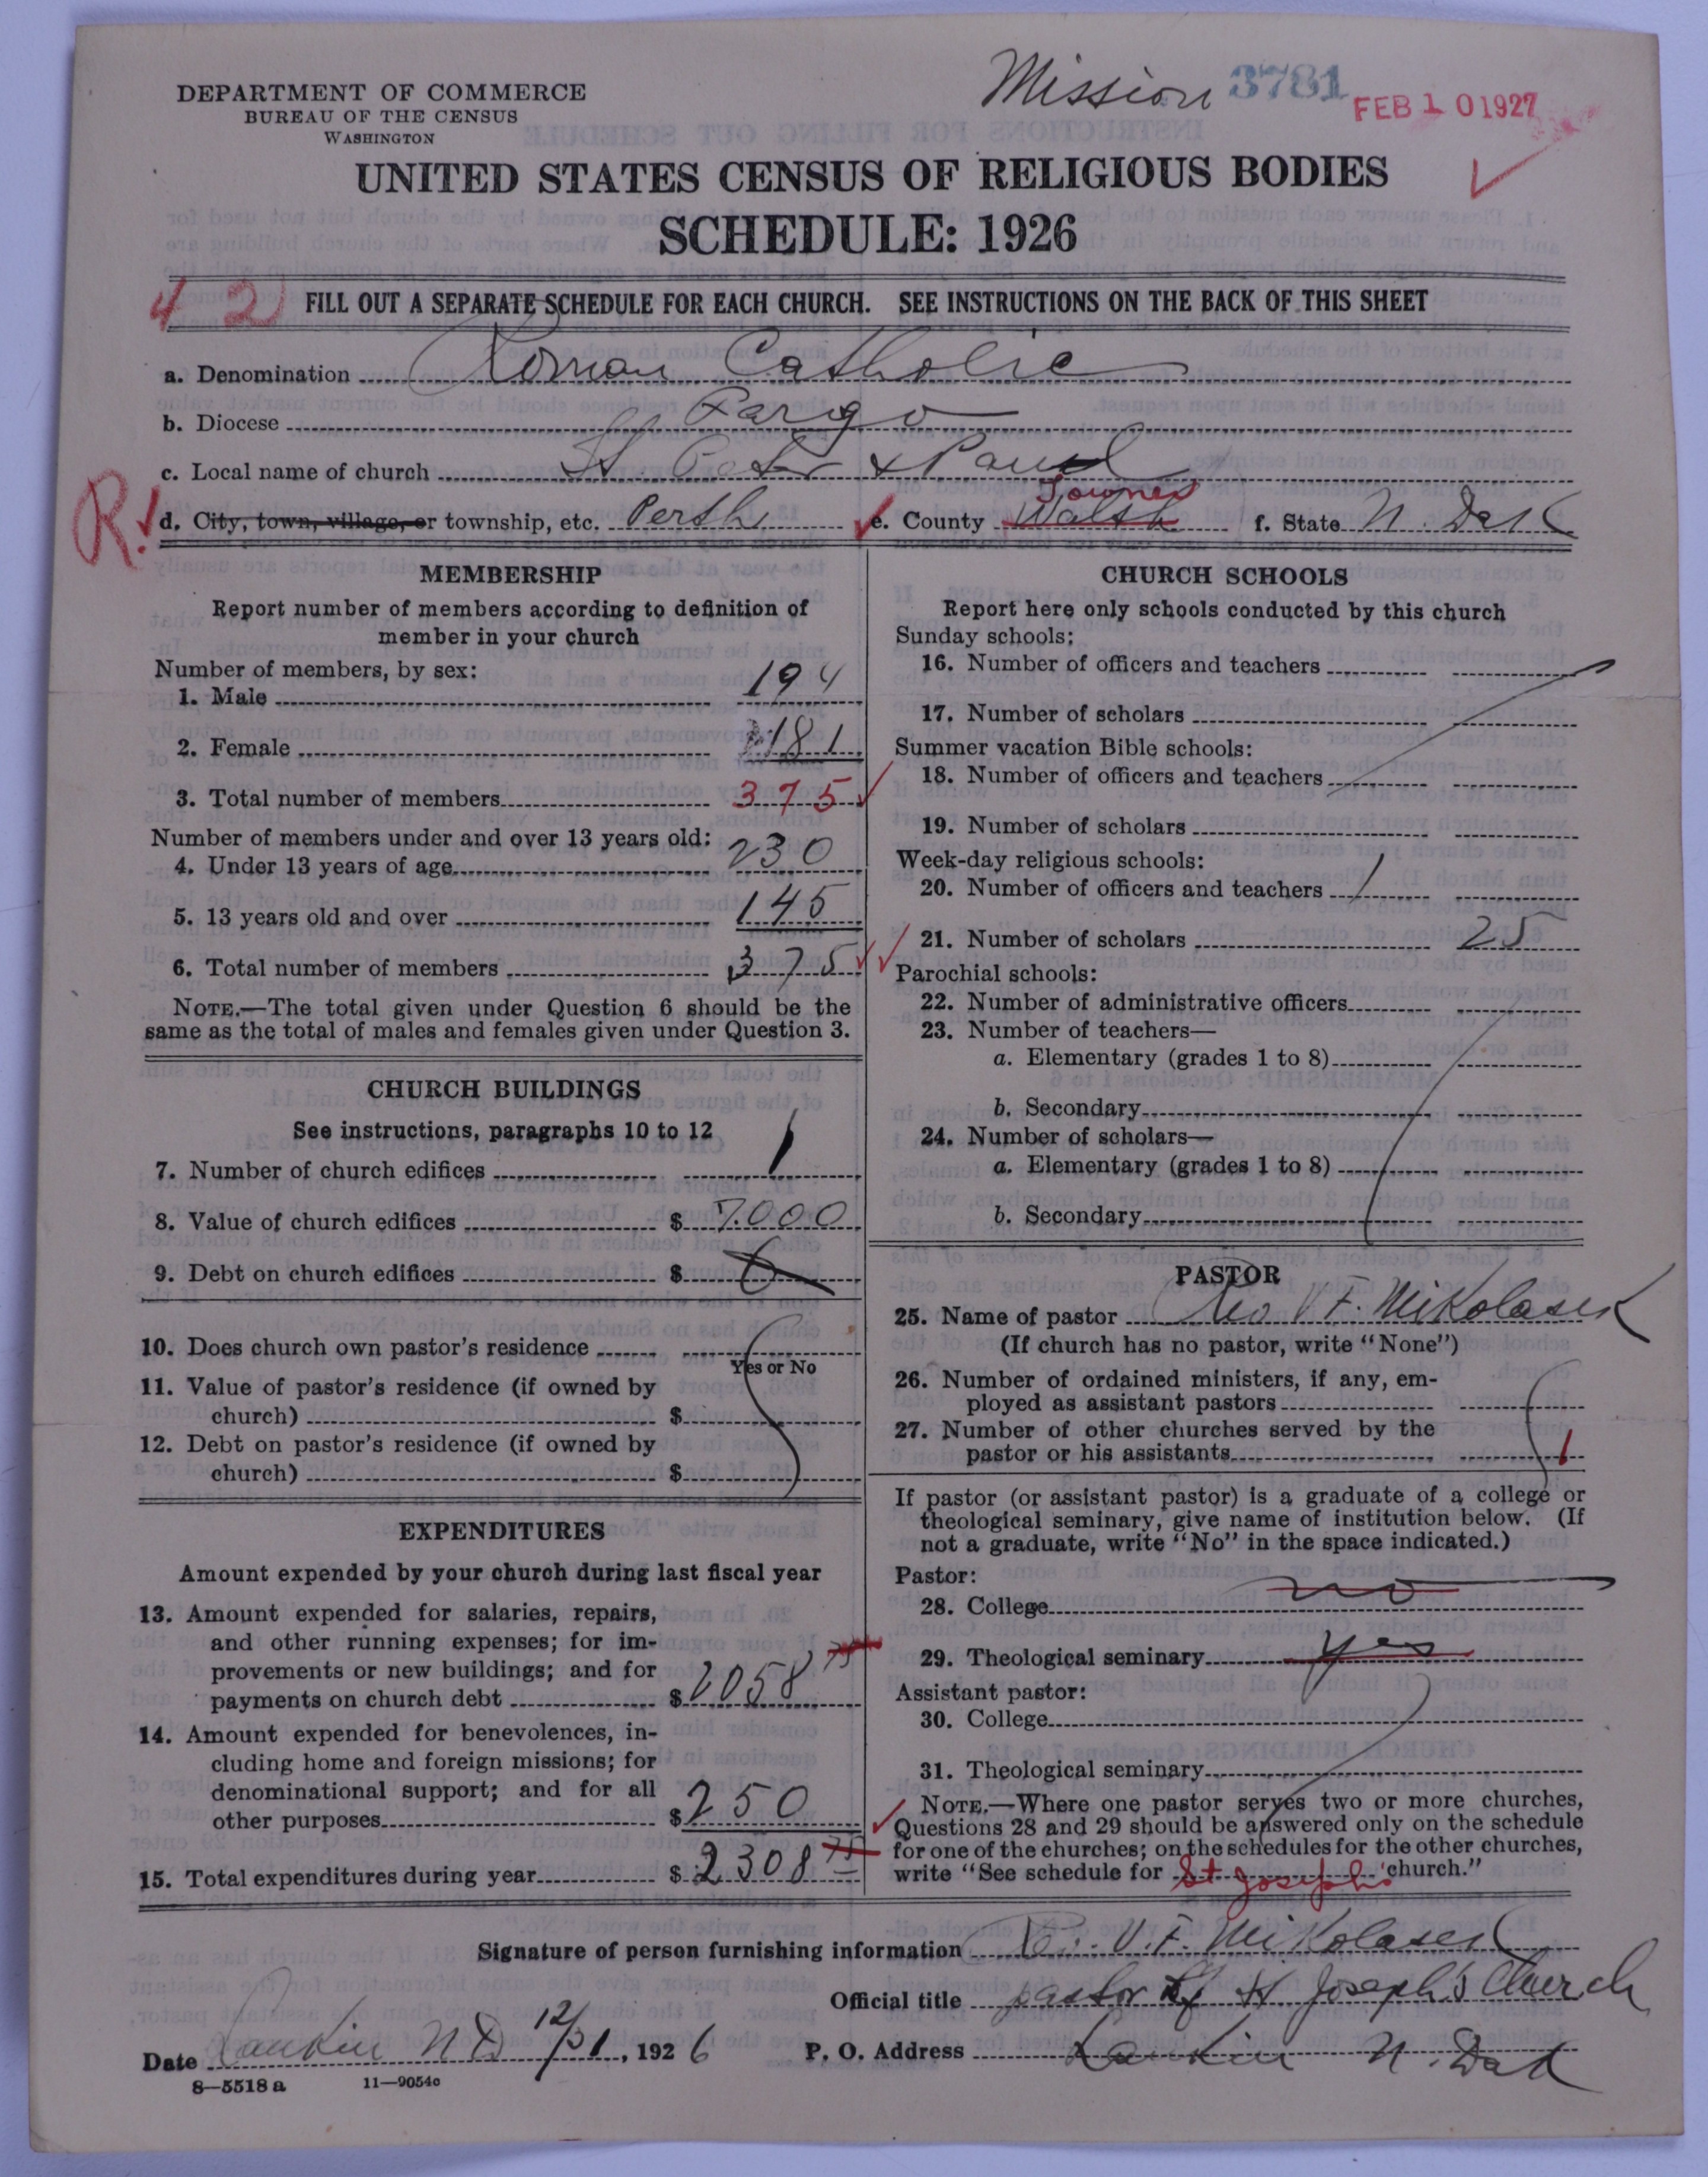 Mission 3781 FEB 10 1927
DEPARTMENT OF COMMERCE
BUREAU OF THE CENSUS
WASHINGTON
UNITED STATES CENSUS OF RELIGIOUS BODIES
SCHEDULE: 1926
42 FILL OUT A SEPARATE SCHEDULE FOR EACH CHURCH. SEE INSTRUCTIONS ON THE BACK OF THIS SHEET
a. Denomination Roman Catholic
b. Diocese Fargo
c. Local name of church St Peter & Paul
R! d. City, town, village, or township, etc. Perth e. County Walsh Towner f. State N. Dak
MEMBERSHIP
Report number of members according to definition of
member in your church
Number of members, by sex:
1. Male 194
2. Female 181
3. Total number of members 375
Number of members under and over 13 years old:
4. Under 13 years of age 230
5. 13 years old and over 145
6. Total number of members 375
NOTE.—The total given under Question 6 should be the
same as the total of males and females given under Question 3.
CHURCH BUILDINGS
See instructions, paragraphs 10 to 12
7. Number of church edifices 1
8. Value of church edifices $ 7000
9. Debt on church edifices $ 0
10. Does church own pastor's residence
Yes or No
11. Value of pastor's residence (if owned by
church) $
12. Debt on pastor's residence (if owned by
church) $
EXPENDITURES
Amount expended by your church during last fiscal year
13. Amount expended for salaries, repairs,
and other running expenses; for im-
provements or new buildings; and for
payments on church debt $ 2058 75
14. Amount expended for benevolences, in-
cluding home and foreign missions; for
denominational support; and for all
other purposes $ 250
15. Total expenditures during year $ 2308 75
CHURCH SCHOOLS
Report here only schools conducted by this church
Sunday schools:
16. Number of officers and teachers
17. Number of scholars
Summer vacation Bible schools:
18. Number of officers and teachers
19. Number of scholars
Week-day religious schools:
20. Number of officers and teachers 1
21. Number of scholars 25
Parochial schools:
22. Number of administrative officers
23. Number of teachers—
a. Elementary (grades 1 to 8)
b. Secondary
24. Number of scholars—
a. Elementary (grades 1 to 8)
b. Secondary
PASTOR
25. Name of pastor V. F. Mikolasek
(If church has no pastor, write "None")
26. Number of ordained ministers, if any, em-
ployed as assistant pastors
27. Number of other churches served by the
pastor or his assistants 1
If pastor (or assistant pastor) is a graduate of a college or
theological seminary, give name of institution below. (If
not a graduate, write "No" in the space indicated.)
Pastor:
28. College no
29. Theological seminary yes
Assistant pastor:
30. College
31. Theological seminary
NOTE.—Where one pastor serves two or more churches,
Questions 28 and 29 should be answered only on the schedule
for one of the churches; on the schedules for the other churches,
write "See schedule for St Joseph's church."
Signature of person furnishing information V. F. Mikolasek
Official title pastor of St Joseph's Church
Date Lankin N D 12/31, 1926 P. O. Address Lankin N. Dak
8—5518 a 11—9054c